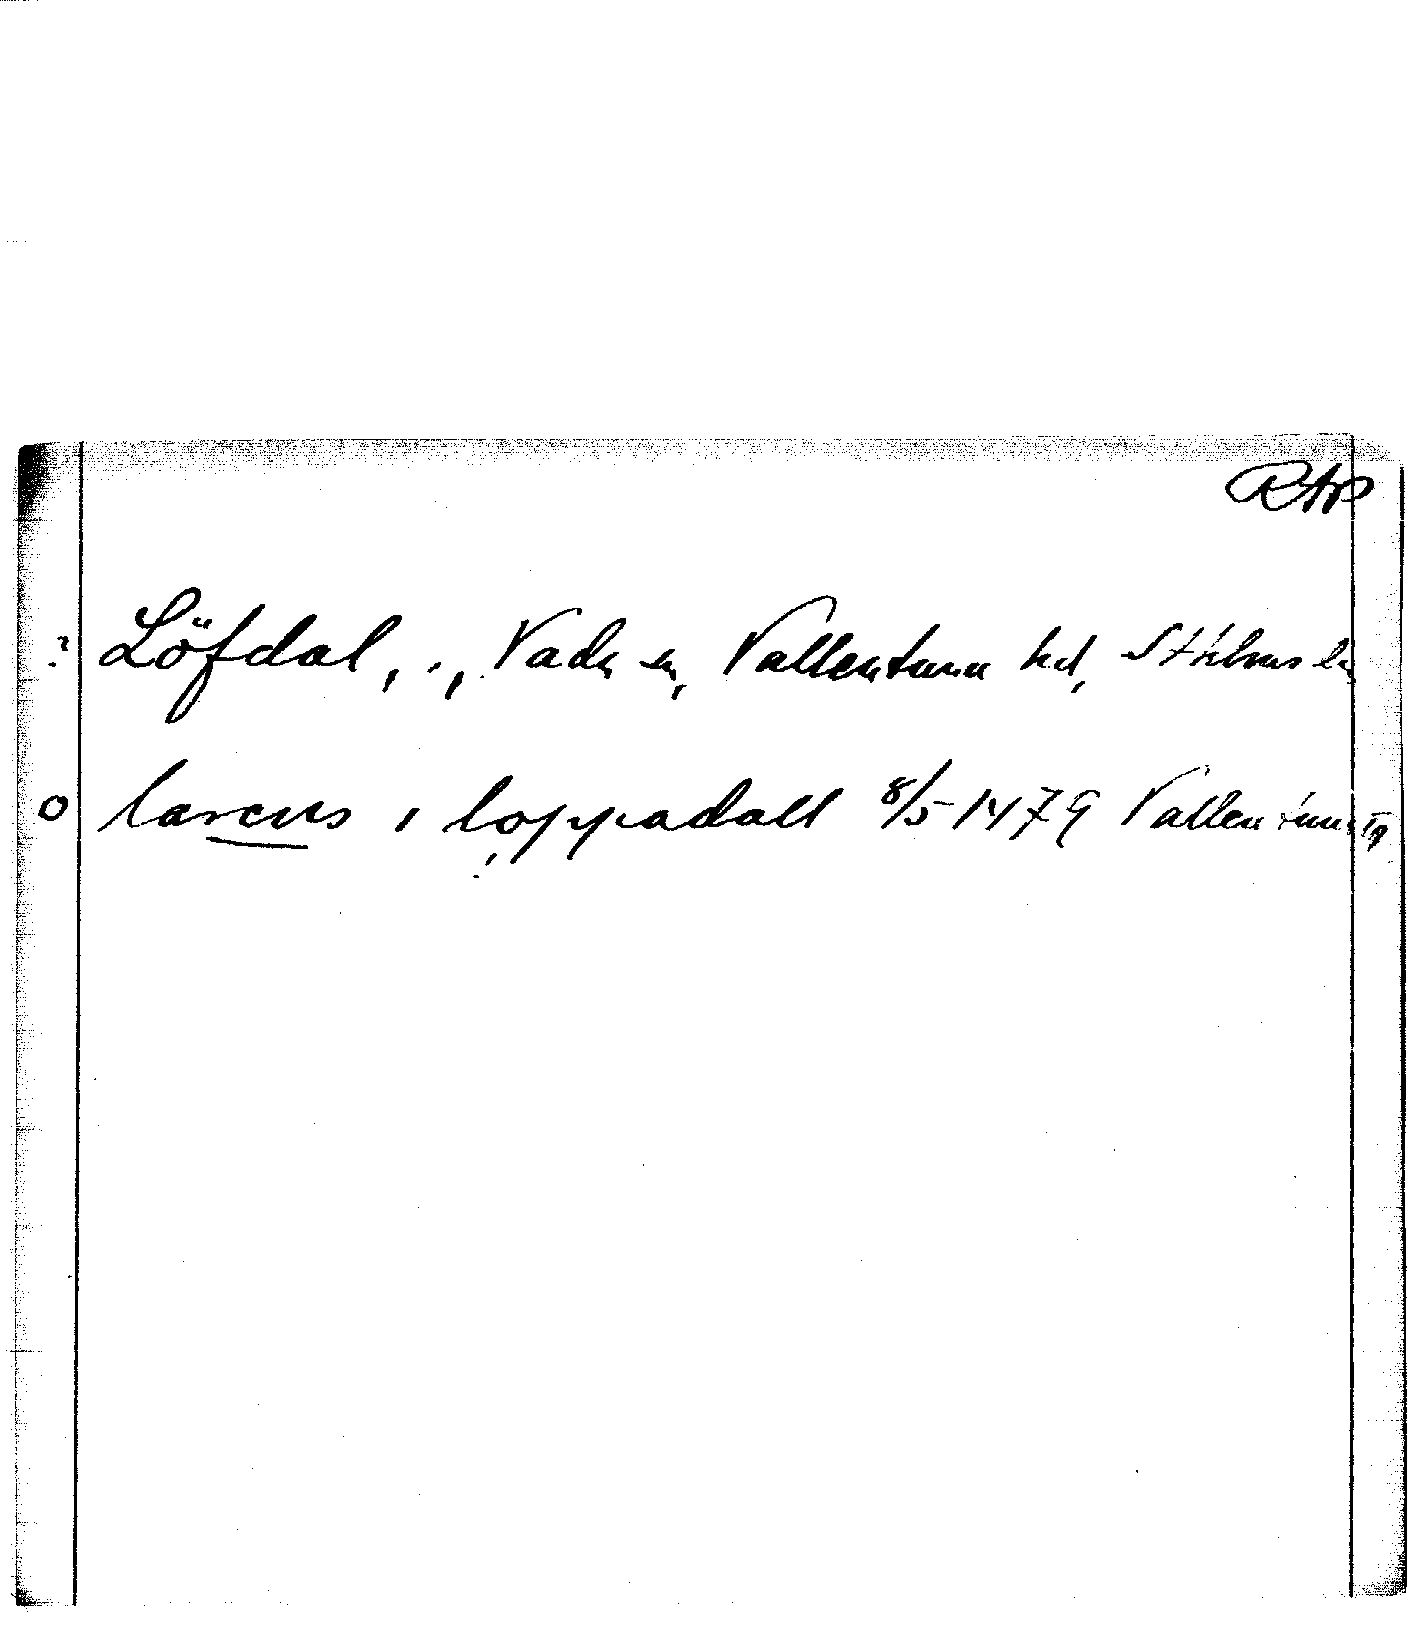 RAp
? Löfdal, ., Vada sn, Vallentuna hd, Sthlms län
o larens i loppadall 8/5 1479 Vallentuna tg